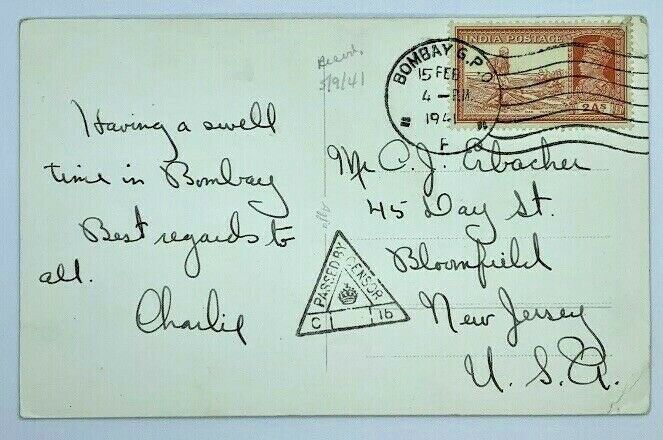 Having a swell
time in Bombay
Best regards to
all.
Charlie
Recd.
5/9/41
BOMBAY G.P.O
15 FEB
4 - P.M.
194
INDIA POSTAGE
2As
Mr C. J. Erbacher
45 Day St.
Bloomfield
New Jersey
U. S. A.
PASSED BY
CENSOR
C 15